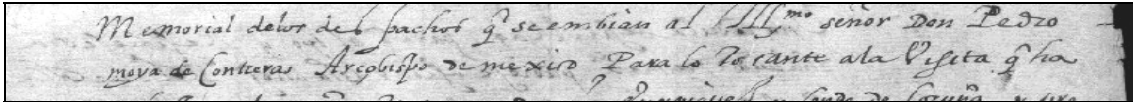 Memorial delos despachos q̃ se embian al Illmo señor Don Pedro
moya de Contreras Arçobispo de mexico Para lo Tocante ala Visita q̃ ha
Conde de Coruña y